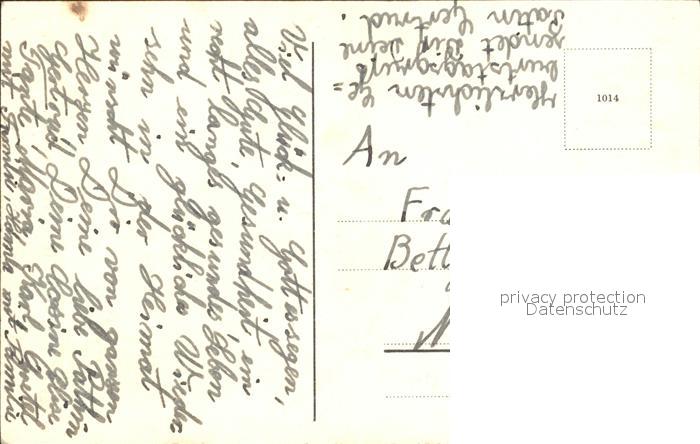 Viel Glück= u. Gottessegen,
alles Gute Gesundheit ein
recht langes gesundes Leben
und ein glückliches Wieder
sehn in der Heimat
wünscht Dir von ganzen
Herzen Deine liebe Patin
Gertrud, Deine Cosine
Tante Maria, Karl Gretl
mit Familie
Herzlichsten Ge=
burtstagsgruß
sendet Dir Deine
Patin Gertrud.
1014
An
Fra
Bett
privacy protection
Datenschutz